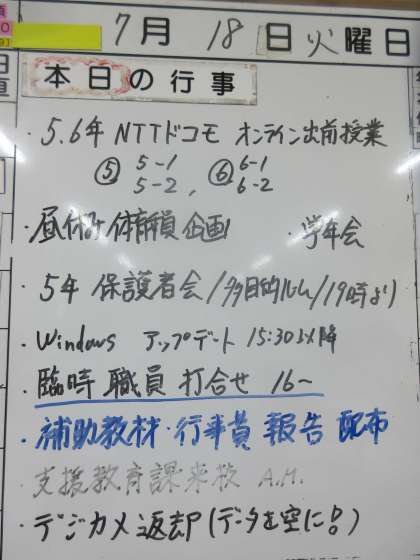 7月 18日 火曜日
本日の行事
・5.6年 NTTドコモ オンライン出前授業
⑤ 5-1 5-2 , ⑥ 6-1 6-2
・昼休み 体育委員 企画 ・学年会
・5年 保護者会/多目的ルーム/19時より
・Windows アップデート 15:30以降
・臨時 職員 打合せ 16〜
・補助教材・行事費 報告 配布
・支援教育課来校 A.M.
・デジカメ返却(データを空に!)